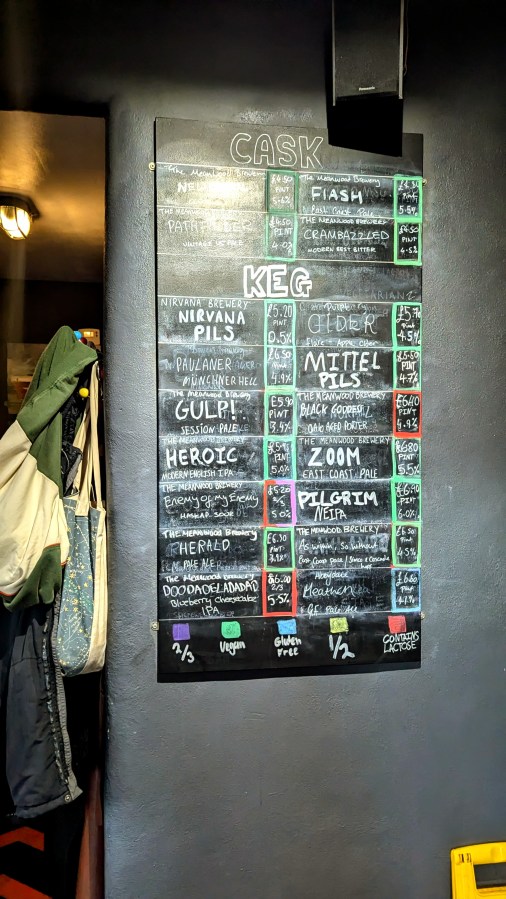 Panasonic
CASK
The Meanwood Brewery
£4.50
PINT
The Meanwood Brewery
FIASH
East Coast Pale
Pint
5.5%
THE MEANWOOD
PATHFINDER
VINTAGE US PALE
£4.50
PINT
4.0%
THE MEANWOOD BREWERY
CRAMBAZZLED
MODERN BEST BITTER
£4.50
PINT
4.5%
KEG
NIRVANA BREWERY
NIRVANA
PILS
£5.20
PINT
0.5%
CIDER
£5.70
Pint
4.5%
PAULANER
MÜNCHNER HELL
£6.50
PINT
4.9%
MITTEL
PILS
£5.60
PINT
4.7%
The Meanwood Brewery
GULP!
SESSION PALE
£5.90
PINT
3.4%
THE MEANWOOD BREWERY
BLACK GODDESS
OAK AGED PORTER
£6.40
PINT
HEROIC
MODERN ENGLISH IPA
PINT
THE MEANWOOD BREWERY
ZOOM
EAST COAST PALE
£6.80
PINT
5.5%
THE MEANWOOD BREWERY
Enemy of my Enemy
HASKAP SOUR
£5.20
2/3
5.0%
PILGRIM
NEIPA
£6.40
PINT
6.0%
The Meanwood Brewery
HERALD
PALE ALE
£6.30
PINT
THE MEANWOOD BREWERY
As within, So without
£6.50
Pint
4.5%
The Meanwood Brewery
DOODADELLADADAD
Blueberry Cheesecake
IPA
£6.00
2/3
5.5%
Heather
GF Pale Ale
2/3
Vegan
Gluten
Free
1/2
CONTAINS
LACTOSE